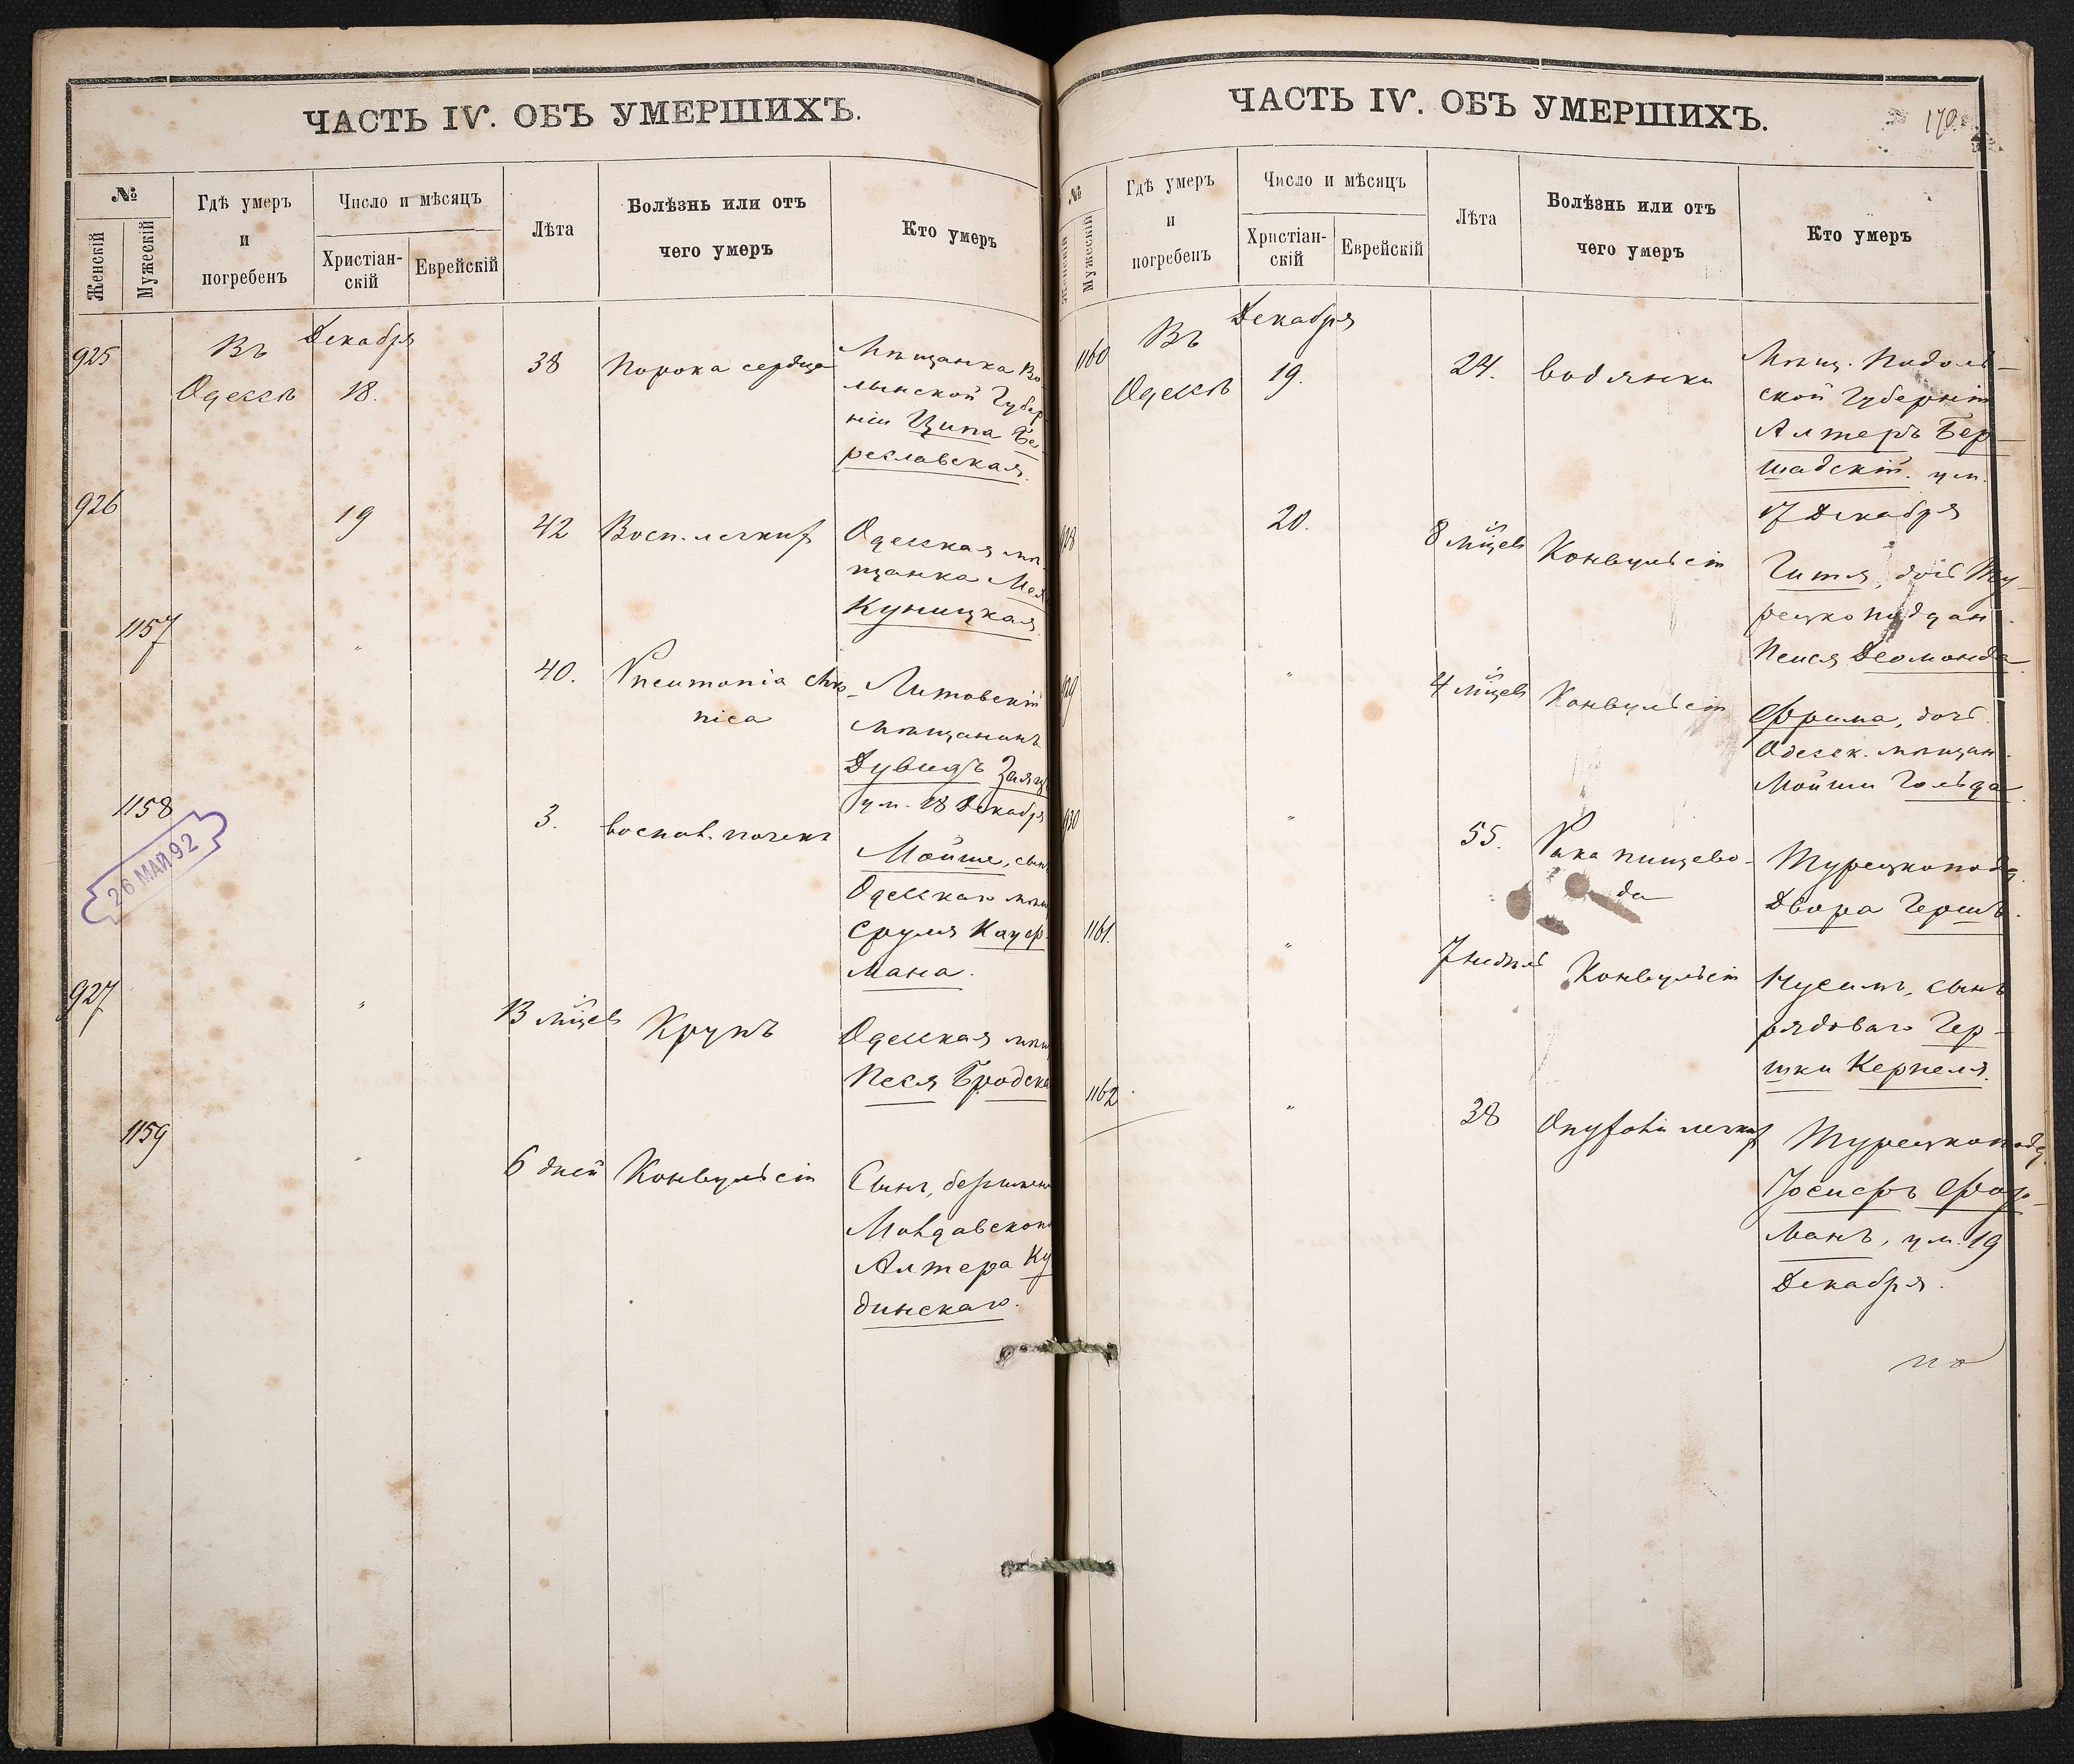 ЧАСТЬ IV. ОБЪ УМЕРШИХЪ.
№
Женскій
Мужескій
Гдѣ умеръ
и
погребенъ
Число и мѣсяцъ
Христіан-
скій
Еврейскій
Лѣта
Болѣзнь или отъ
чего умеръ
Кто умеръ
925
Въ
Одессѣ
Декабря
18.
38
Порока сердца
Мѣщанка Во-
лынской Губер
ніи Ципа Бе-
реславская.
926
19
42
Восп. легкихъ
Одесская мѣ-
щанка
Куницкая
1157
"
40.
Pneumonia chro-
nica
Литовскій
мѣщанинъ
Дувидъ Заяцъ
ум. 18 Декабря
1158
26 МАЙ 92
3.
воспал. почекъ
Мойше, сынъ
Одесскаго мѣщ
Сруля Кауф
мана.
927
"
13 мцевъ
Крупъ
Одесская мѣщ
Песя Бродска
1159
"
6 дней
Конвульсіи
Сынъ, безъимен
Молдавскоп
Алтера Ку
динскаго.
ЧАСТЬ IV. ОБЪ УМЕРШИХЪ.
170.
№
Женскій
Мужескій
Гдѣ умеръ
и
погребенъ
Число и мѣсяцъ
Христіан-
скій
Еврейскій
Лѣта
Болѣзнь или отъ
чего умеръ
Кто умеръ
1160
Въ
Одессѣ
Декабря
19.
24.
водянки
Мѣщ. Подоль-
ской Губерніи
Алтеръ Бер-
шадскій. ум.
17 Декабря
928
20.
8 мцевъ
Конвульсіи
Гитля, дочь Ту-
рецкоподдан.
Пейся
929
"
4 мцевъ
Конвульсіи
Фрима, дочь
Одесск. мѣщан.
Мойши Гольда
930
"
55.
Рака пищево-
да
Турецкоподд.
Двора Гершъ.
1161.
"
7 недѣль
Конвульсіи
Нусимъ, сынъ
рядоваго Гер-
шки Керпеля.
1162
"
38
Опухоли легкихъ
Турецкоподд.
Іосифъ Фур-
манъ, ум. 19
Декабря.